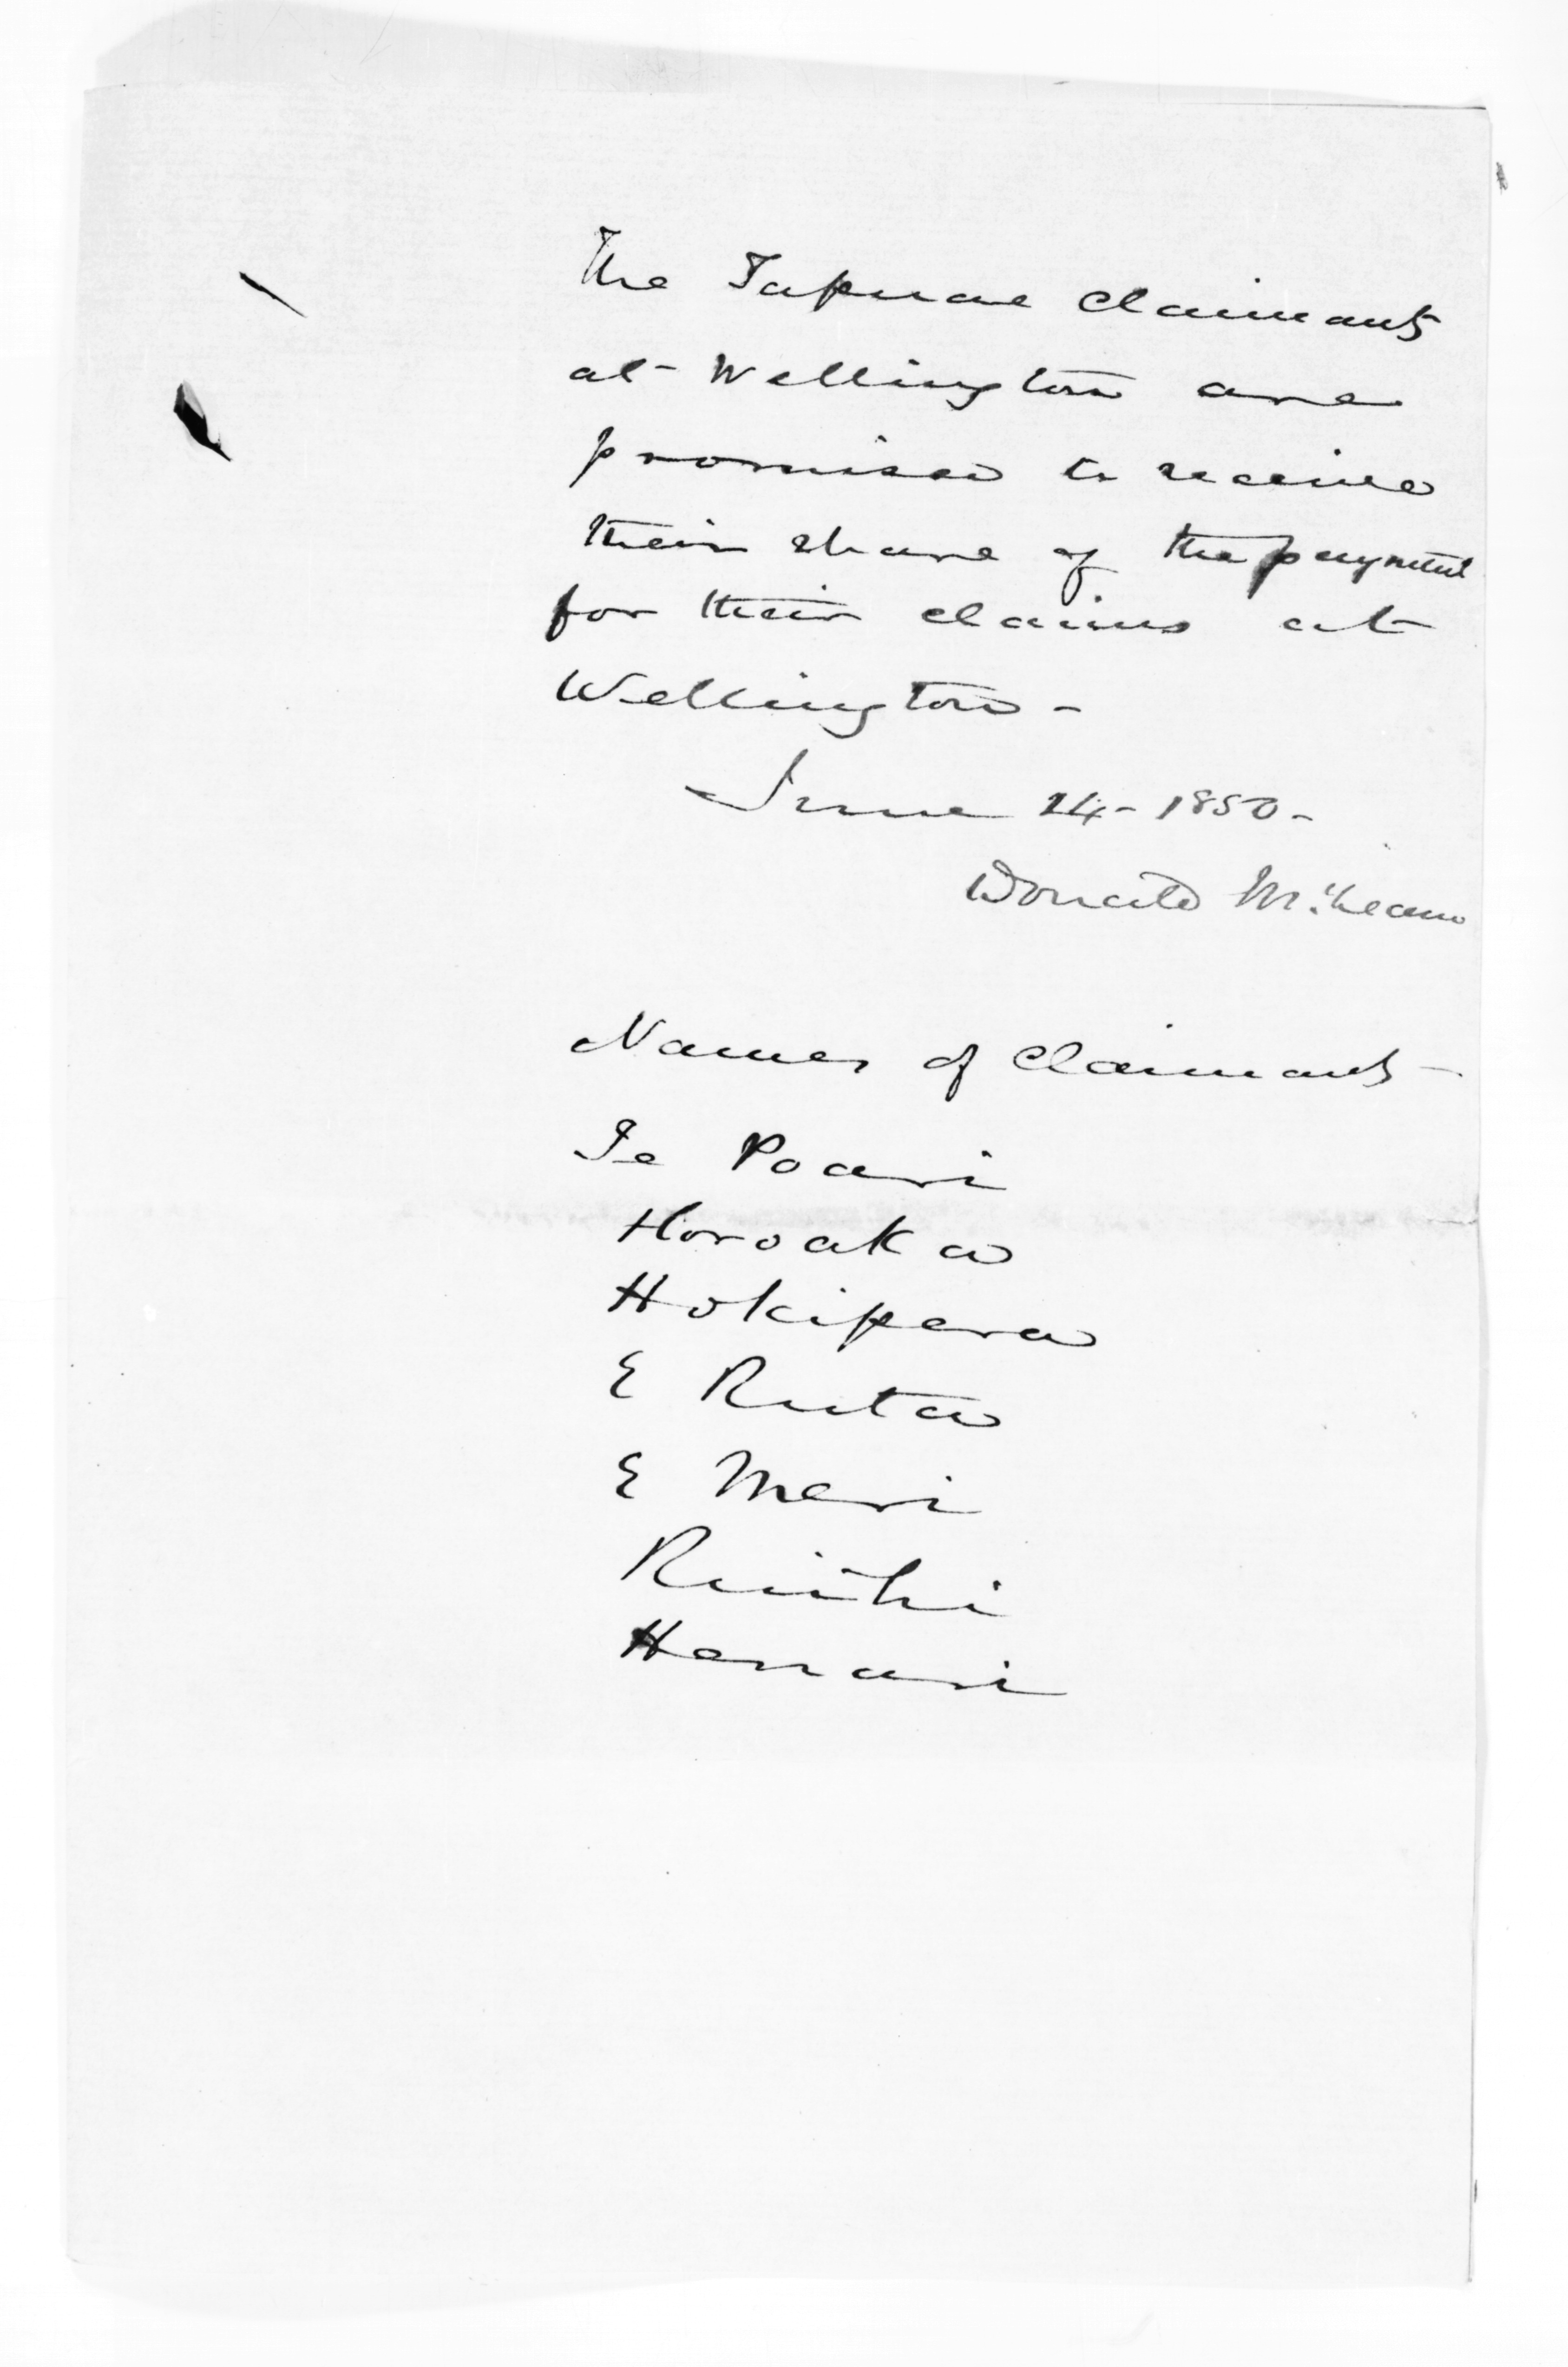 The Tapuae Claimants
at Wellington are
promised to receive
their share of the payment
for their claims at
Wellington -
June 24 - 1850 -
Donald McLean
Names of Claimants -
Te Poari
Horoaka
Hokipera
E Ruta
E Meri
Ruihi
Henari